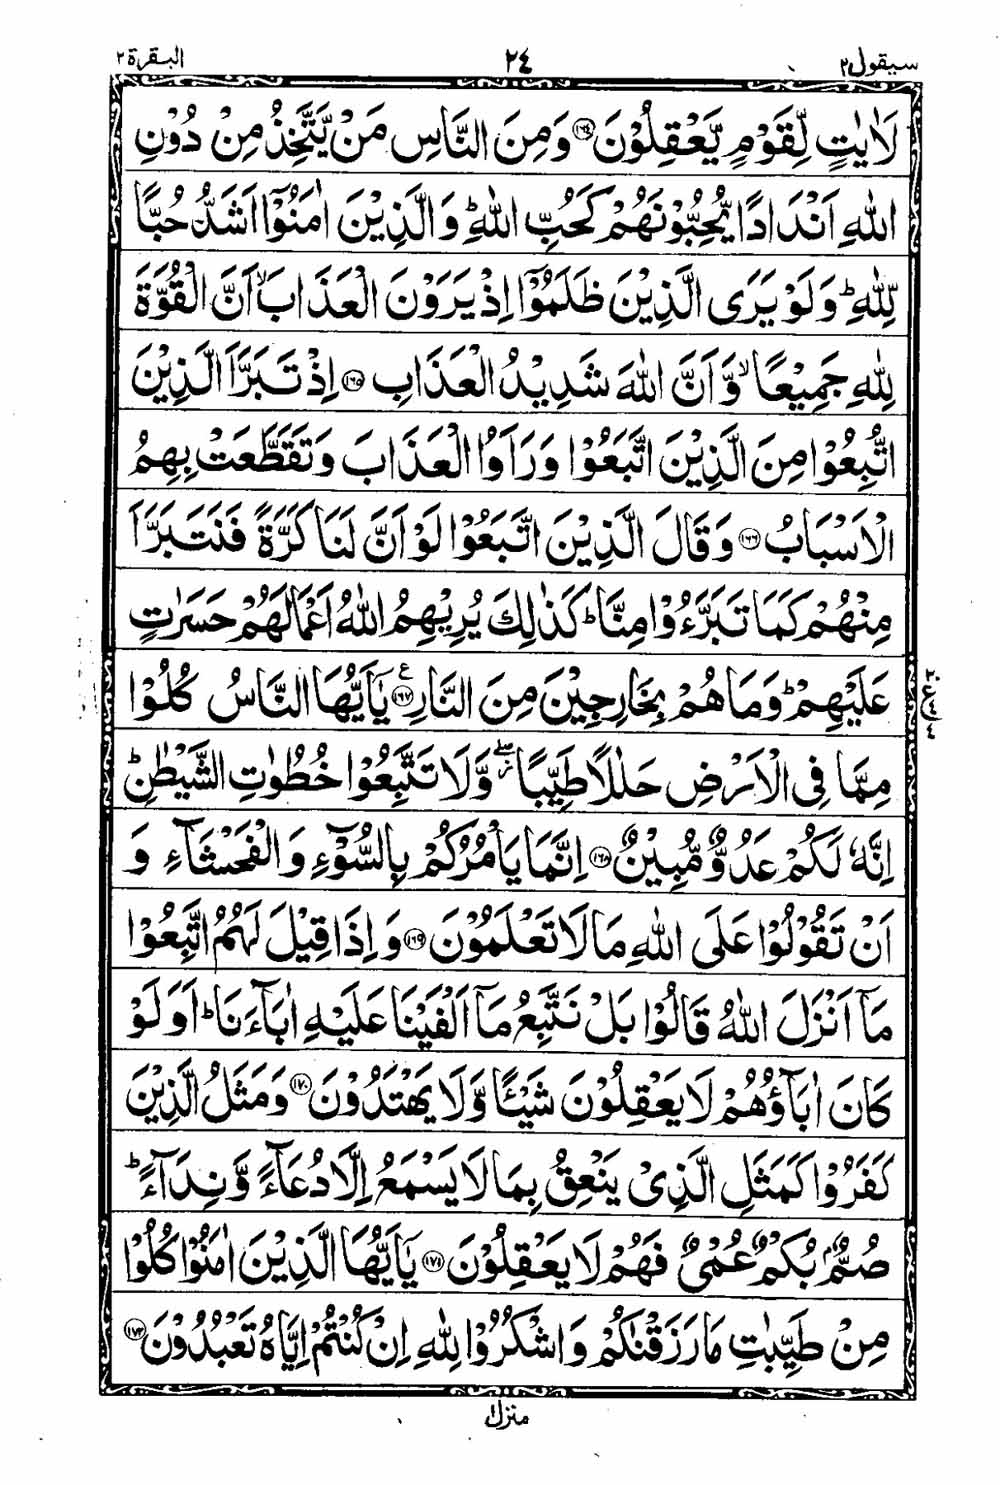 سيقول٢ ٢٤ البقرة٢
لَاٰيٰتٍ لِّقَوْمٍ يَّعْقِلُوْنَ ﴿١٦٤﴾ وَمِنَ النَّاسِ مَنْ يَّتَّخِذُ مِنْ دُوْنِ
اللّٰهِ اَنْدَادًا يُّحِبُّوْنَهُمْ كَحُبِّ اللّٰهِ ؕ وَالَّذِيْنَ اٰمَنُوْۤا اَشَدُّ حُبًّا
لِّلّٰهِ ؕ وَلَوْ يَرَى الَّذِيْنَ ظَلَمُوْۤا اِذْ يَرَوْنَ الْعَذَابَ ۙ اَنَّ الْقُوَّةَ
لِلّٰهِ جَمِيْعًا ۙ وَّاَنَّ اللّٰهَ شَدِيْدُ الْعَذَابِ ﴿١٦٥﴾ اِذْ تَبَرَّاَ الَّذِيْنَ
اتُّبِعُوْا مِنَ الَّذِيْنَ اتَّبَعُوْا وَرَاَوُا الْعَذَابَ وَتَقَطَّعَتْ بِهِمُ
الْاَسْبَابُ ﴿١٦٦﴾ وَقَالَ الَّذِيْنَ اتَّبَعُوْا لَوْ اَنَّ لَنَا كَرَّةً فَنَتَبَرَّاَ
مِنْهُمْ كَمَا تَبَرَّءُوْا مِنَّا ؕ كَذٰلِكَ يُرِيْهِمُ اللّٰهُ اَعْمَالَهُمْ حَسَرٰتٍ
عَلَيْهِمْ ؕ وَمَا هُمْ بِخَارِجِيْنَ مِنَ النَّارِ ﴿١٦٧﴾ ع يٰۤاَيُّهَا النَّاسُ كُلُوْا
مِمَّا فِى الْاَرْضِ حَلٰلًا طَيِّبًا ۖ وَّلَا تَتَّبِعُوْا خُطُوٰتِ الشَّيْطٰنِ ؕ
اِنَّهٗ لَكُمْ عَدُوٌّ مُّبِيْنٌ ﴿١٦٨﴾ اِنَّمَا يَاْمُرُكُمْ بِالسُّوْٓءِ وَالْفَحْشَآءِ وَ
اَنْ تَقُوْلُوْا عَلَى اللّٰهِ مَا لَا تَعْلَمُوْنَ ﴿١٦٩﴾ وَاِذَا قِيْلَ لَهُمُ اتَّبِعُوْا
مَاۤ اَنْزَلَ اللّٰهُ قَالُوْا بَلْ نَتَّبِعُ مَاۤ اَلْفَيْنَا عَلَيْهِ اٰبَآءَنَا ؕ اَوَلَوْ
كَانَ اٰبَآؤُهُمْ لَا يَعْقِلُوْنَ شَيْـًٔا وَّلَا يَهْتَدُوْنَ ﴿١٧٠﴾ وَمَثَلُ الَّذِيْنَ
كَفَرُوْا كَمَثَلِ الَّذِىْ يَنْعِقُ بِمَا لَا يَسْمَعُ اِلَّا دُعَآءً وَّنِدَآءً ؕ
صُمٌّۢ بُكْمٌ عُمْىٌ فَهُمْ لَا يَعْقِلُوْنَ ﴿١٧١﴾ يٰۤاَيُّهَا الَّذِيْنَ اٰمَنُوْا كُلُوْا
مِنْ طَيِّبٰتِ مَا رَزَقْنٰكُمْ وَاشْكُرُوْا لِلّٰهِ اِنْ كُنْتُمْ اِيَّاهُ تَعْبُدُوْنَ ﴿١٧٢﴾
منزل١